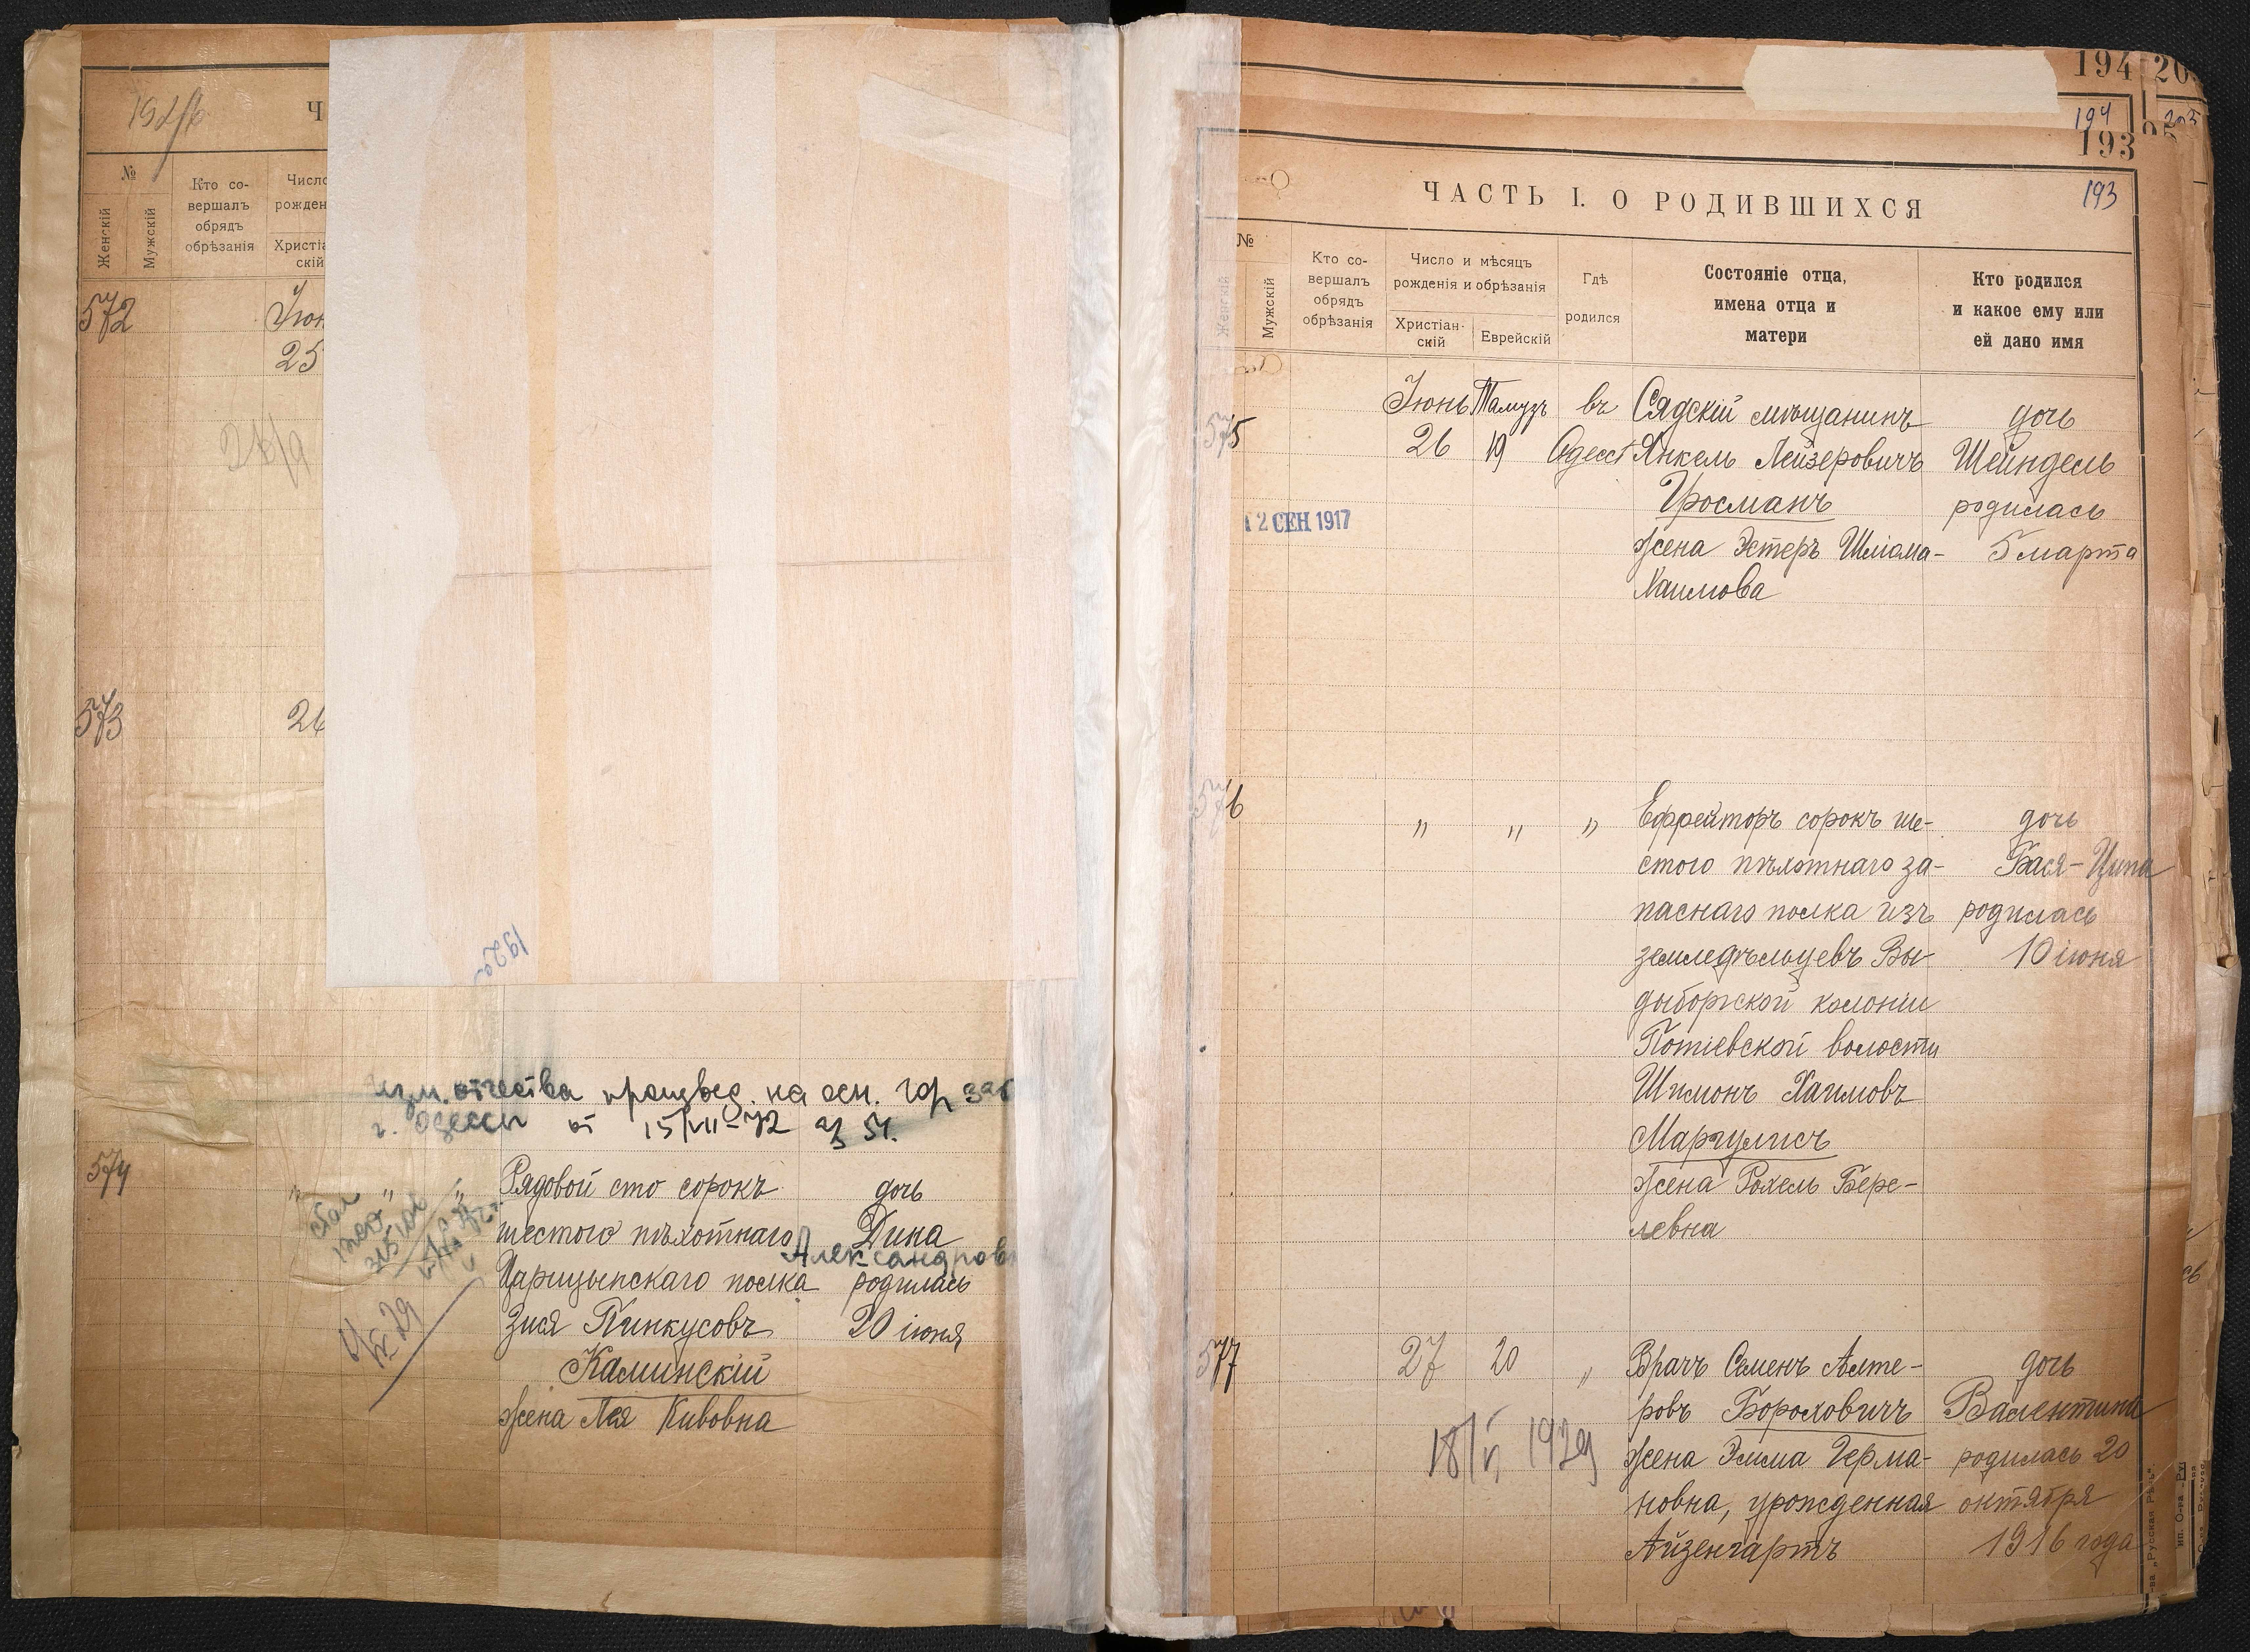 192
Ч
№
Женскій
Мужскій
Кто со-
вершалъ
обрядъ
обрѣзанія
572
25
573
26
изм. отчества произвед. на осн.
г. Одессы от 15/VII-72
574
"
"
"
Рядовой сто сорокъ
шестого пѣхотнаго
Царицынскаго полка
Зися Пинкусовъ
Каминскій
жена Лея Кивовна
дочь
Дина
Александров
родилась
20 іюня
194
194
203
193
193
ЧАСТЬ I. О РОДИВШИХСЯ
№
Женскій
Мужскій
Кто со-
вершалъ
обрядъ
обрѣзанія
Число и мѣсяцъ
рожденія и обрѣзанія
Христіан-
скій
Еврейскій
Гдѣ
родился
Состояніе отца,
имена отца и
матери
Кто родился
и какое ему или
ей дано имя
575
Іюнь
26
Тамузъ
19
въ
Одессѣ
Сядскій мѣщанинъ
Янкель Лейзеровичъ
Гросманъ
жена Эстеръ Шліома-
Хаимова
дочь
Шейндель
родилась
5 марта
12 СЕН 1917
576
"
"
"
Ефрейторъ сорокъ ше-
стого пѣхотнаго за-
паснаго полка изъ
земледѣльцевъ Вы-
дыборской колоніи
Потіевской волости
Шимонъ Хаимовъ
Маргулисъ
жена Рохель Бере-
левна
дочь
Бася-Ципа
родилась
10 іюня
577
27
20
"
Врачъ Семенъ Алте-
ровъ Бороховичъ
жена Эмма Герма-
новна, урожденная
Айзенгартъ
дочь
Валентина
родилась 20
октября
1916 года
18/VI 1929
-ва „Русская Рѣчь“.